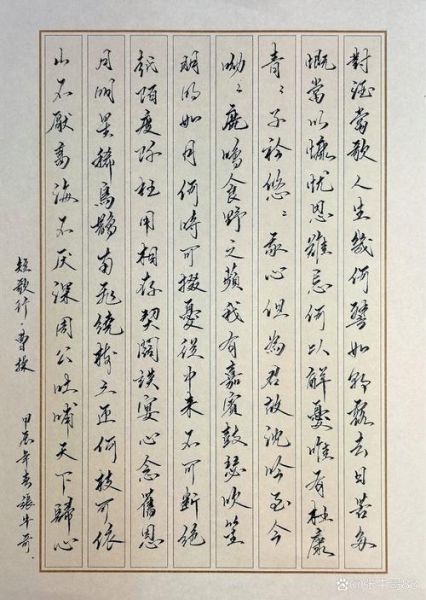 對酒當歌人生幾何譬如朝露去日苦多
慨當以慷忧思難忘何以解憂唯有杜康
青〻子衿悠〻我心但為君故沈吟至今
呦〻鹿鳴食野之蘋我有嘉賓鼓瑟吹笙
明明如月何時可掇憂從中来不可断絕
越陌度阡枉用相存契闊談宴心念舊恩
月明星稀烏鵲南飛繞樹三匝何枝可依
山不厭高海不厌深周公吐哺天下歸心
短歌行·曹操
甲辰年春張牛哥.